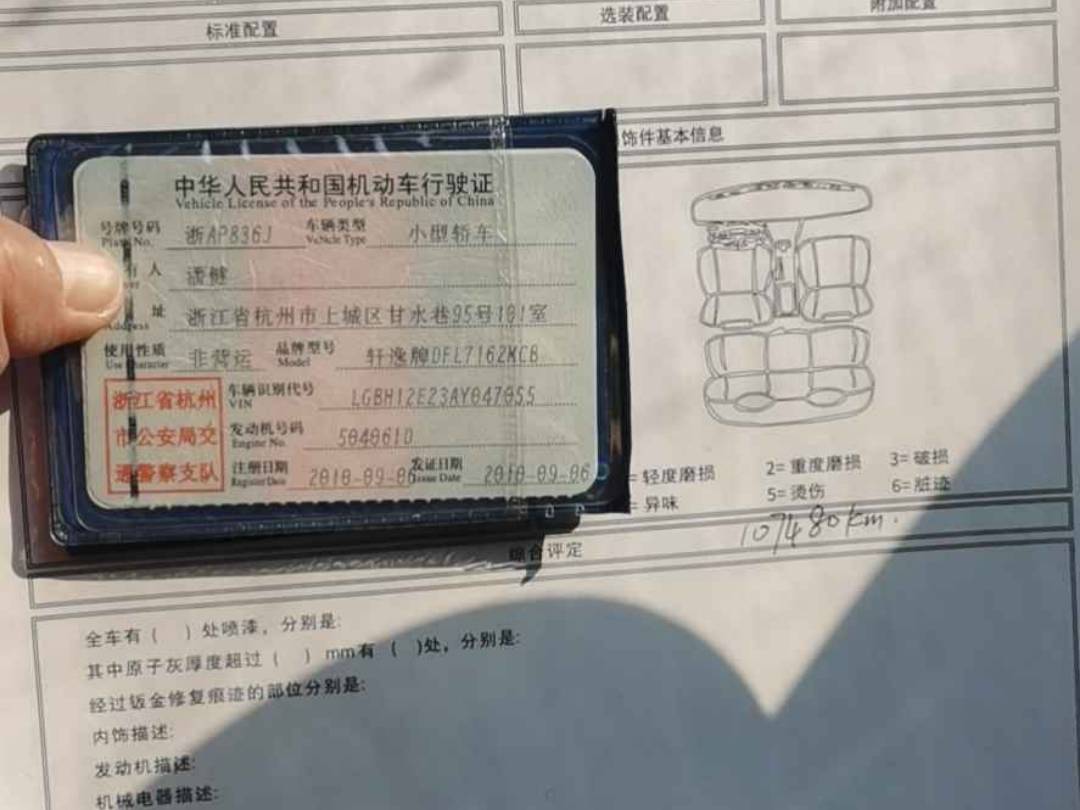 标准配置
选装配置
附加配置
饰件基本信息
中华人民共和国机动车行驶证
Vehicle License of the People's Republic of China
号牌号码 浙AP836J 车辆类型 小型轿车
Plate No. Vehicle Type
有人
址 浙江省杭州市上城区甘水巷95号101室
Address
使用性质 非营运 品牌型号 轩逸牌DFL7162MCB
Use Character Model
浙江省杭州市公安局交通警察支队
车辆识别代号 LGBH12E23AY047055
VIN
发动机号码 504061D
Engine No.
注册日期 2010-09-06 发证日期 2010-09-06
Register Date Issue Date
=轻度磨损 2=重度磨损 3=破损
=异味 5=烫伤 6=脏迹
107480km.
综合评定
全车有( )处喷漆，分别是:
其中原子灰厚度超过( )mm有( )处，分别是:
经过钣金修复痕迹的部位分别是:
内饰描述:
发动机描述:
机械电器描述: